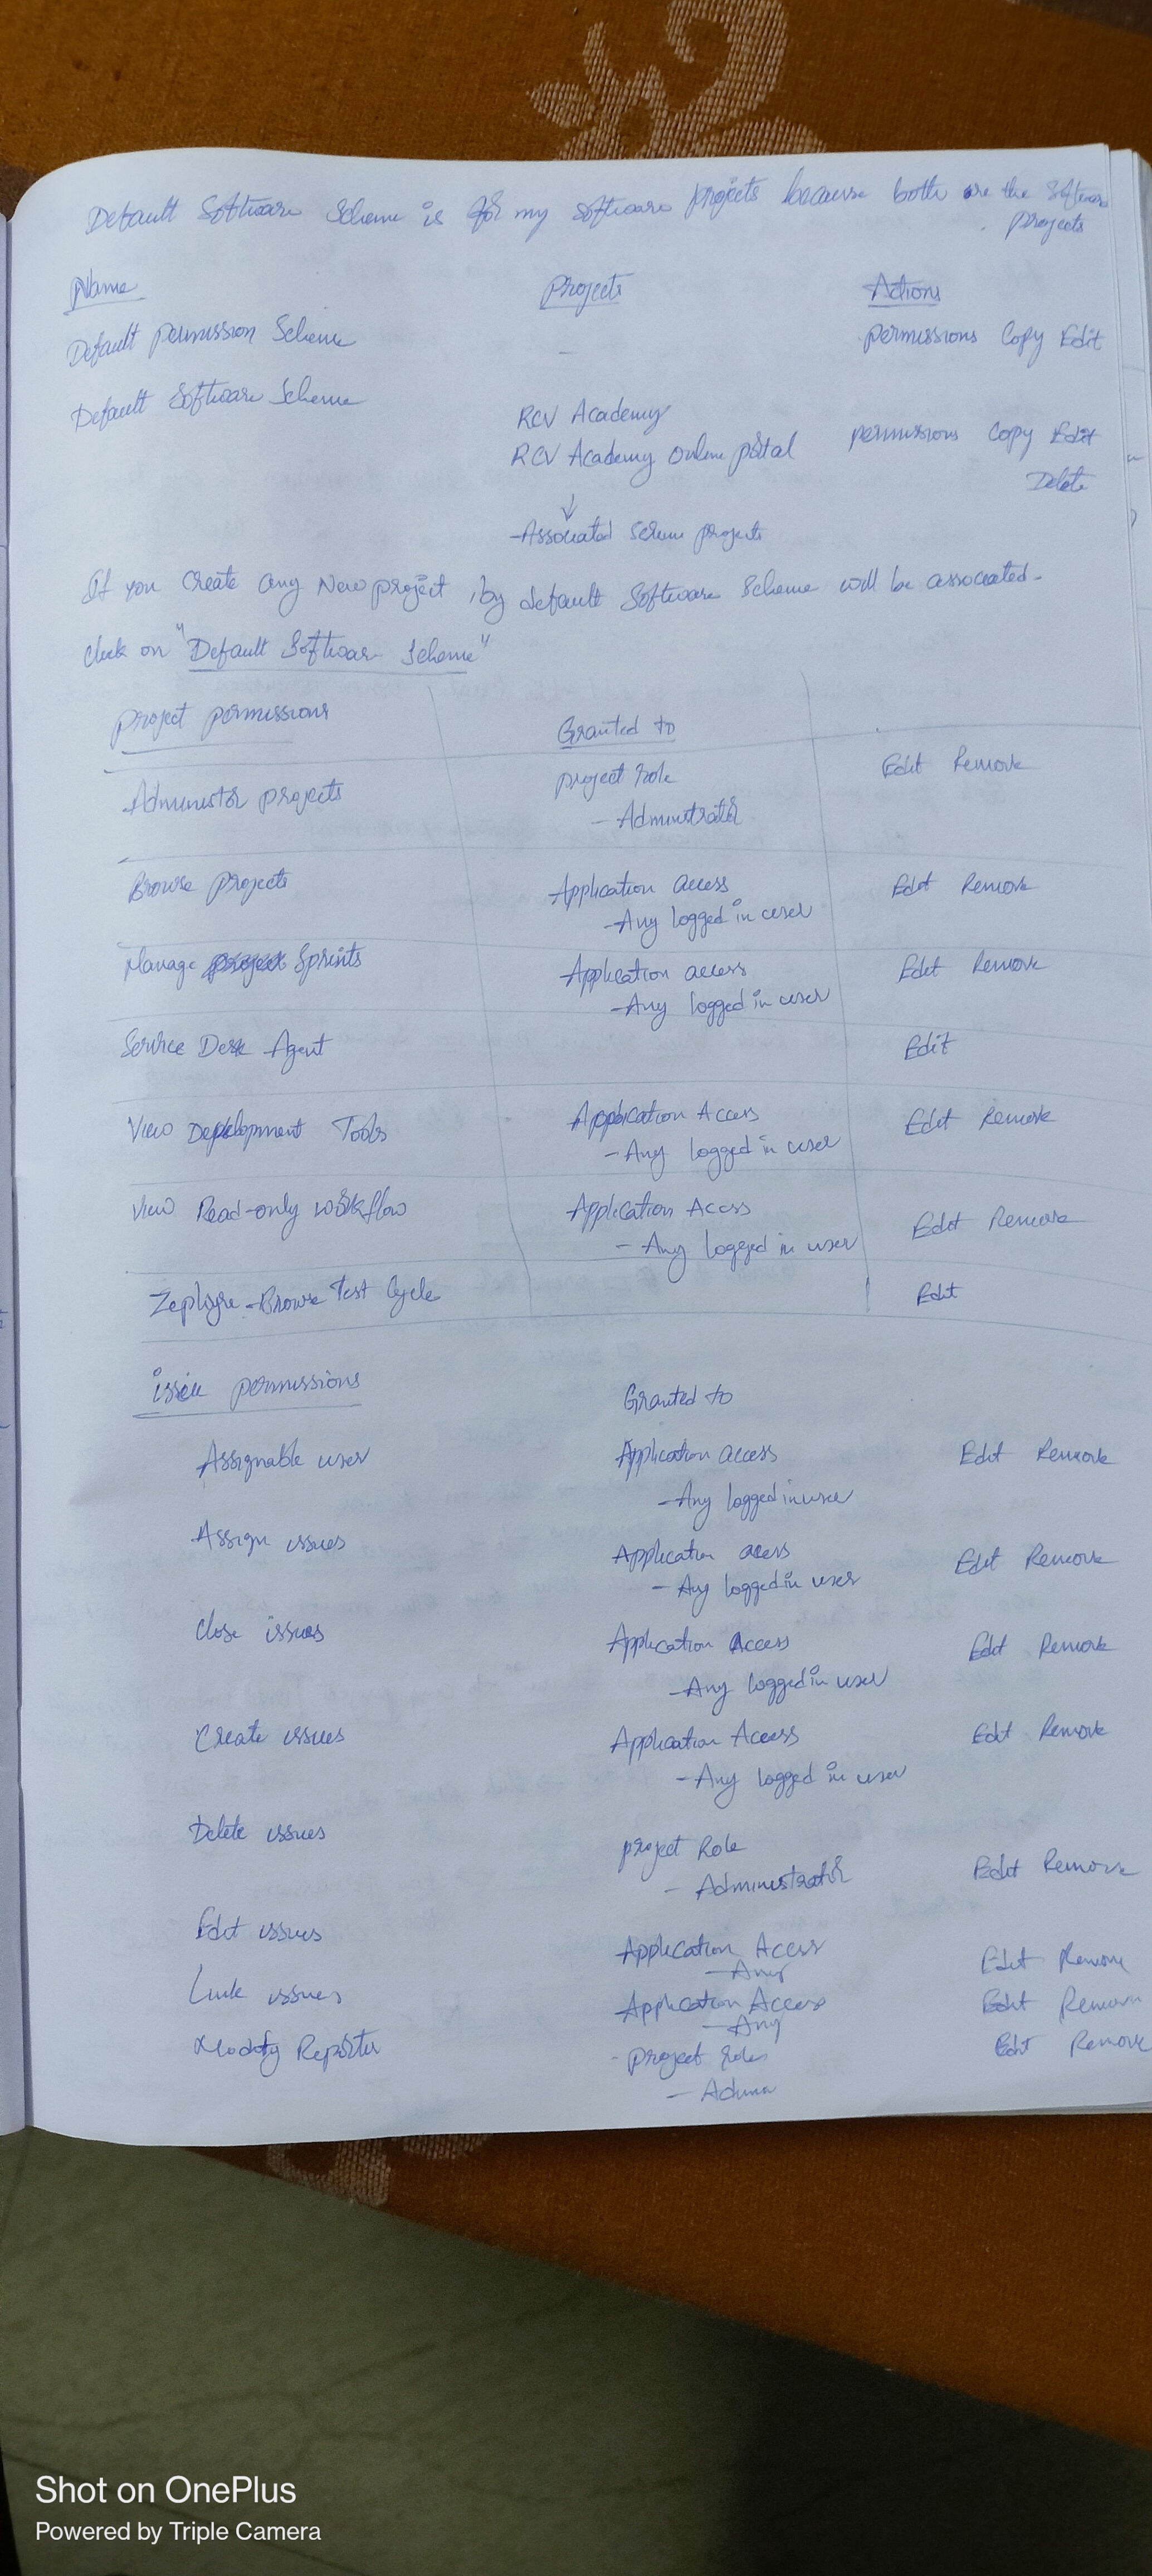 Default Software Scheme is for my software projects because both are the software
projects
Name Projects Actions
Default permission Scheme - permissions Copy Edit
Default Software Scheme
RCV Academy
RCV Academy online portal permissions Copy Edit
Delete
↓
-Associated scheme projects
If you create any New project, by default Software Scheme will be associated.
click on "Default Software Scheme"
project permissions Granted to
Administor projects project role Edit Remove
- Adminstrator
Browse projects Application access Edit Remove
-Any logged in user
Manage Sprints Application access Edit Remove
-Any logged in user
Service Desk Agent Edit
View Development Tools Application Access Edit Remove
-Any logged in user
View Read-only workflow Application Access Edit Remove
- Any logged in user
Zephyre -Browse Test Cycle Edit
issue permissions Granted to
Assignable user Application access Edit Remove
-Any logged in user
Assign issues Application access Edit Remove
- Any logged in user
Close issues Application Access Edit Remove
-Any logged in user
Create issues Application Access Edit Remove
-Any logged in user
Delete issues project Role Edit Remove
- Administrator
Edit issues Application Access Edit Remove
-Any
Link issues Application Access Edit Remove
-Any
Modify Reporter project roles Edit Remove
- Admin
Shot on OnePlus
Powered by Triple Camera